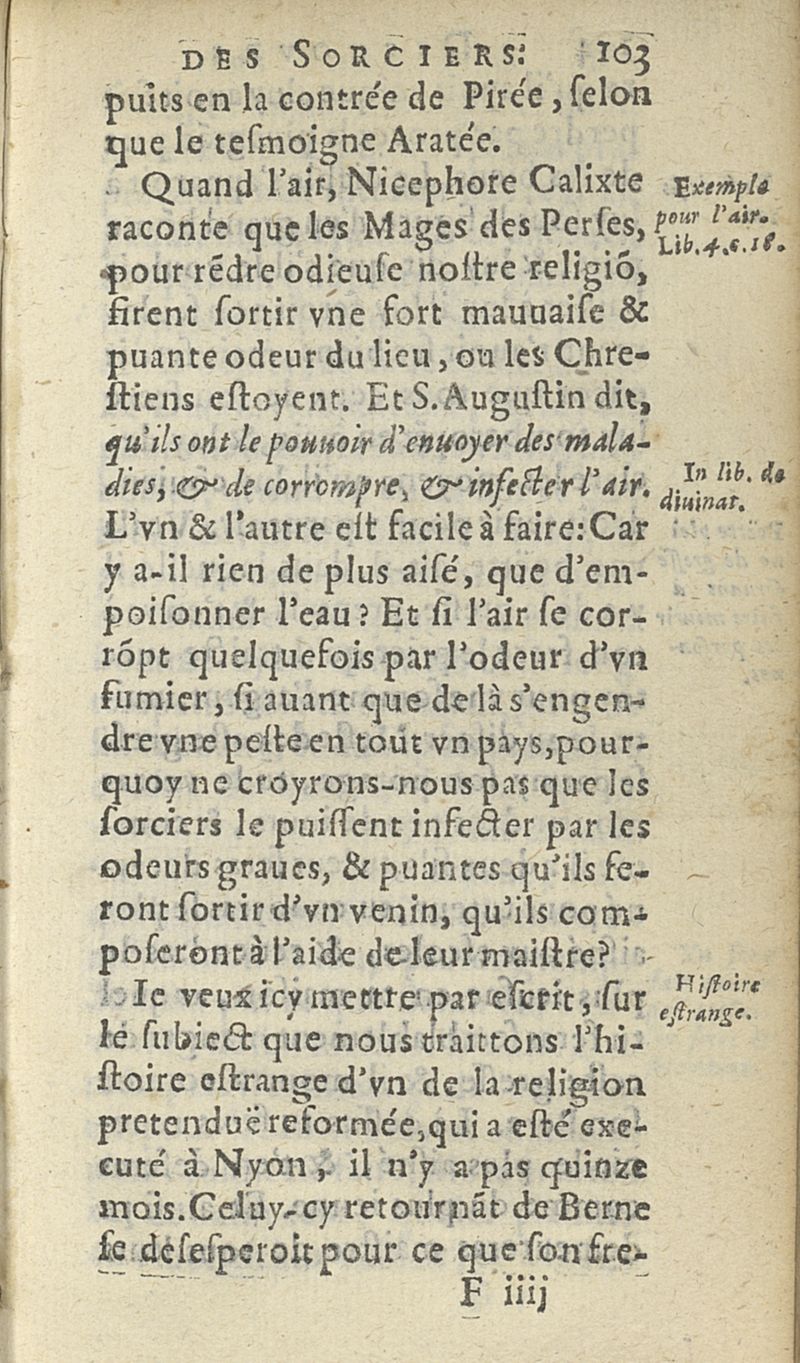 DES SORCIERS. 103
puits en la contrée de Pirée, ſelon
que le teſmoigne Aratée.
Quand l'air, Nicephore Calixte
Exemple
raconte que les Mages des Perſes,
pour l'air.
Lib.4.c.18.
pour rẽdre odieuſe noſtre religiõ,
firent ſortir vne fort mauuaiſe &
puante odeur du lieu, ou les Chre-
ſtiens eſtoyent. Et S. Auguſtin dit,
qu'ils ont le pouuoir d'enuoyer des mala-
dies, & de corrompre, & infecter l'air.
In lib. de
diuinat.
L'vn & l'autre eſt facile à faire: Car
y a-il rien de plus aiſé, que d'em-
poiſonner l'eau? Et ſi l'air ſe cor-
rõpt quelquefois par l'odeur d'vn
fumier, ſi auant que de là s'engen-
dre vne peſte en tout vn pays, pour-
quoy ne croyrons-nous pas que les
ſorciers le puiſſent infecter par les
odeurs graues, & puantes qu'ils fe-
ront ſortir d'vn venin, qu'ils com-
poſeront à l'aide de leur maiſtre?
Ie veux icy mettre par eſcrit, ſur
Hiſtoire
eſtrange.
le ſubiect que nous traittons l'hi-
ſtoire eſtrange d'vn de la religion
pretenduë reformée, qui a eſté exe-
cuté à Nyon, il n'y a pas quinze
mois. Celuy-cy retournãt de Berne
ſe deſeſperoit pour ce que ſon fre-
F iiij